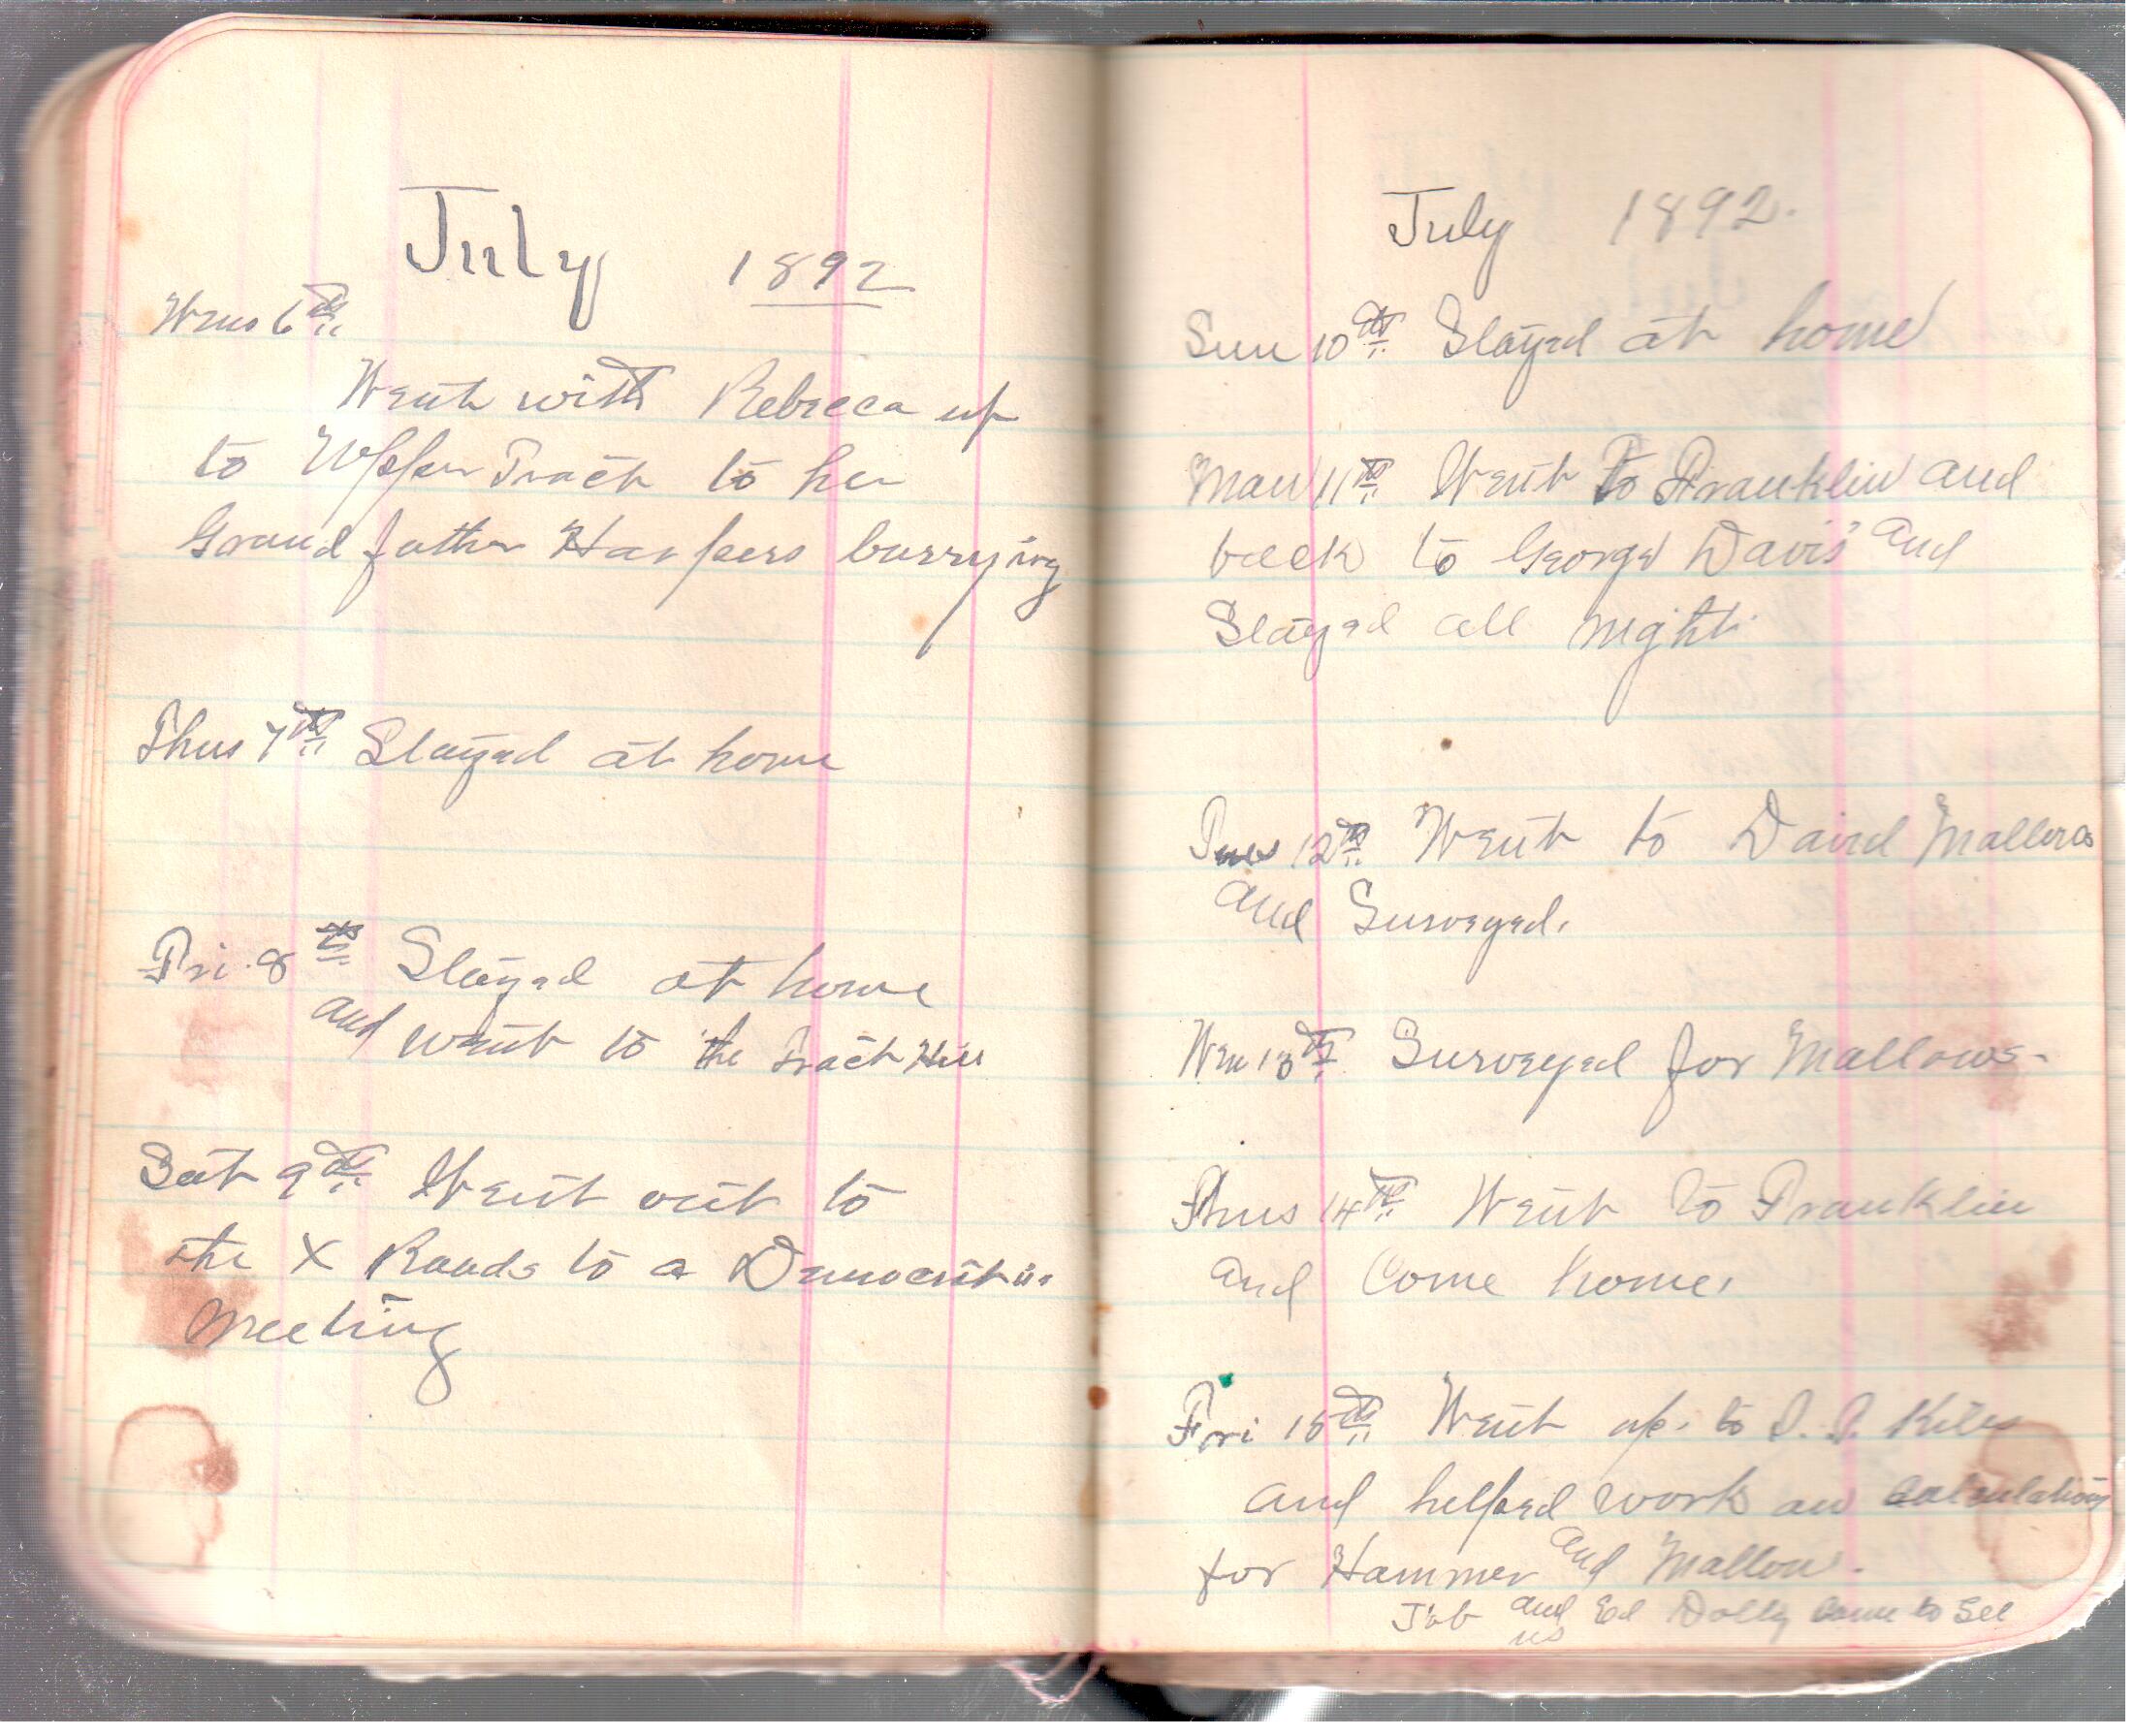 July 1892
Wens 6th
Went with Rebecca up
to Upper Tract to her
Grand father Harpers burrying
Thus 7th Stayed at home
Fri. 8th Stayed at home
and went to the Tract Hill
Sat 9th Went out to
the X Roads to a Democratic
Meeting
July 1892.
Sun 10th Stayed at home
Mon 11th Went to Franklin and
back to George Davis' and
Stayed all night.
Tues 12th Went to David Mallows
and Surveyed.
Wen 13th Surveyed for Mallows-
Thus 14th Went to Franklin
and Come home.
Fri 15th Went up. to Kiles
and helped work on calculations
for Hammer and Mallow.
Job and Ed Dolly came to See
us